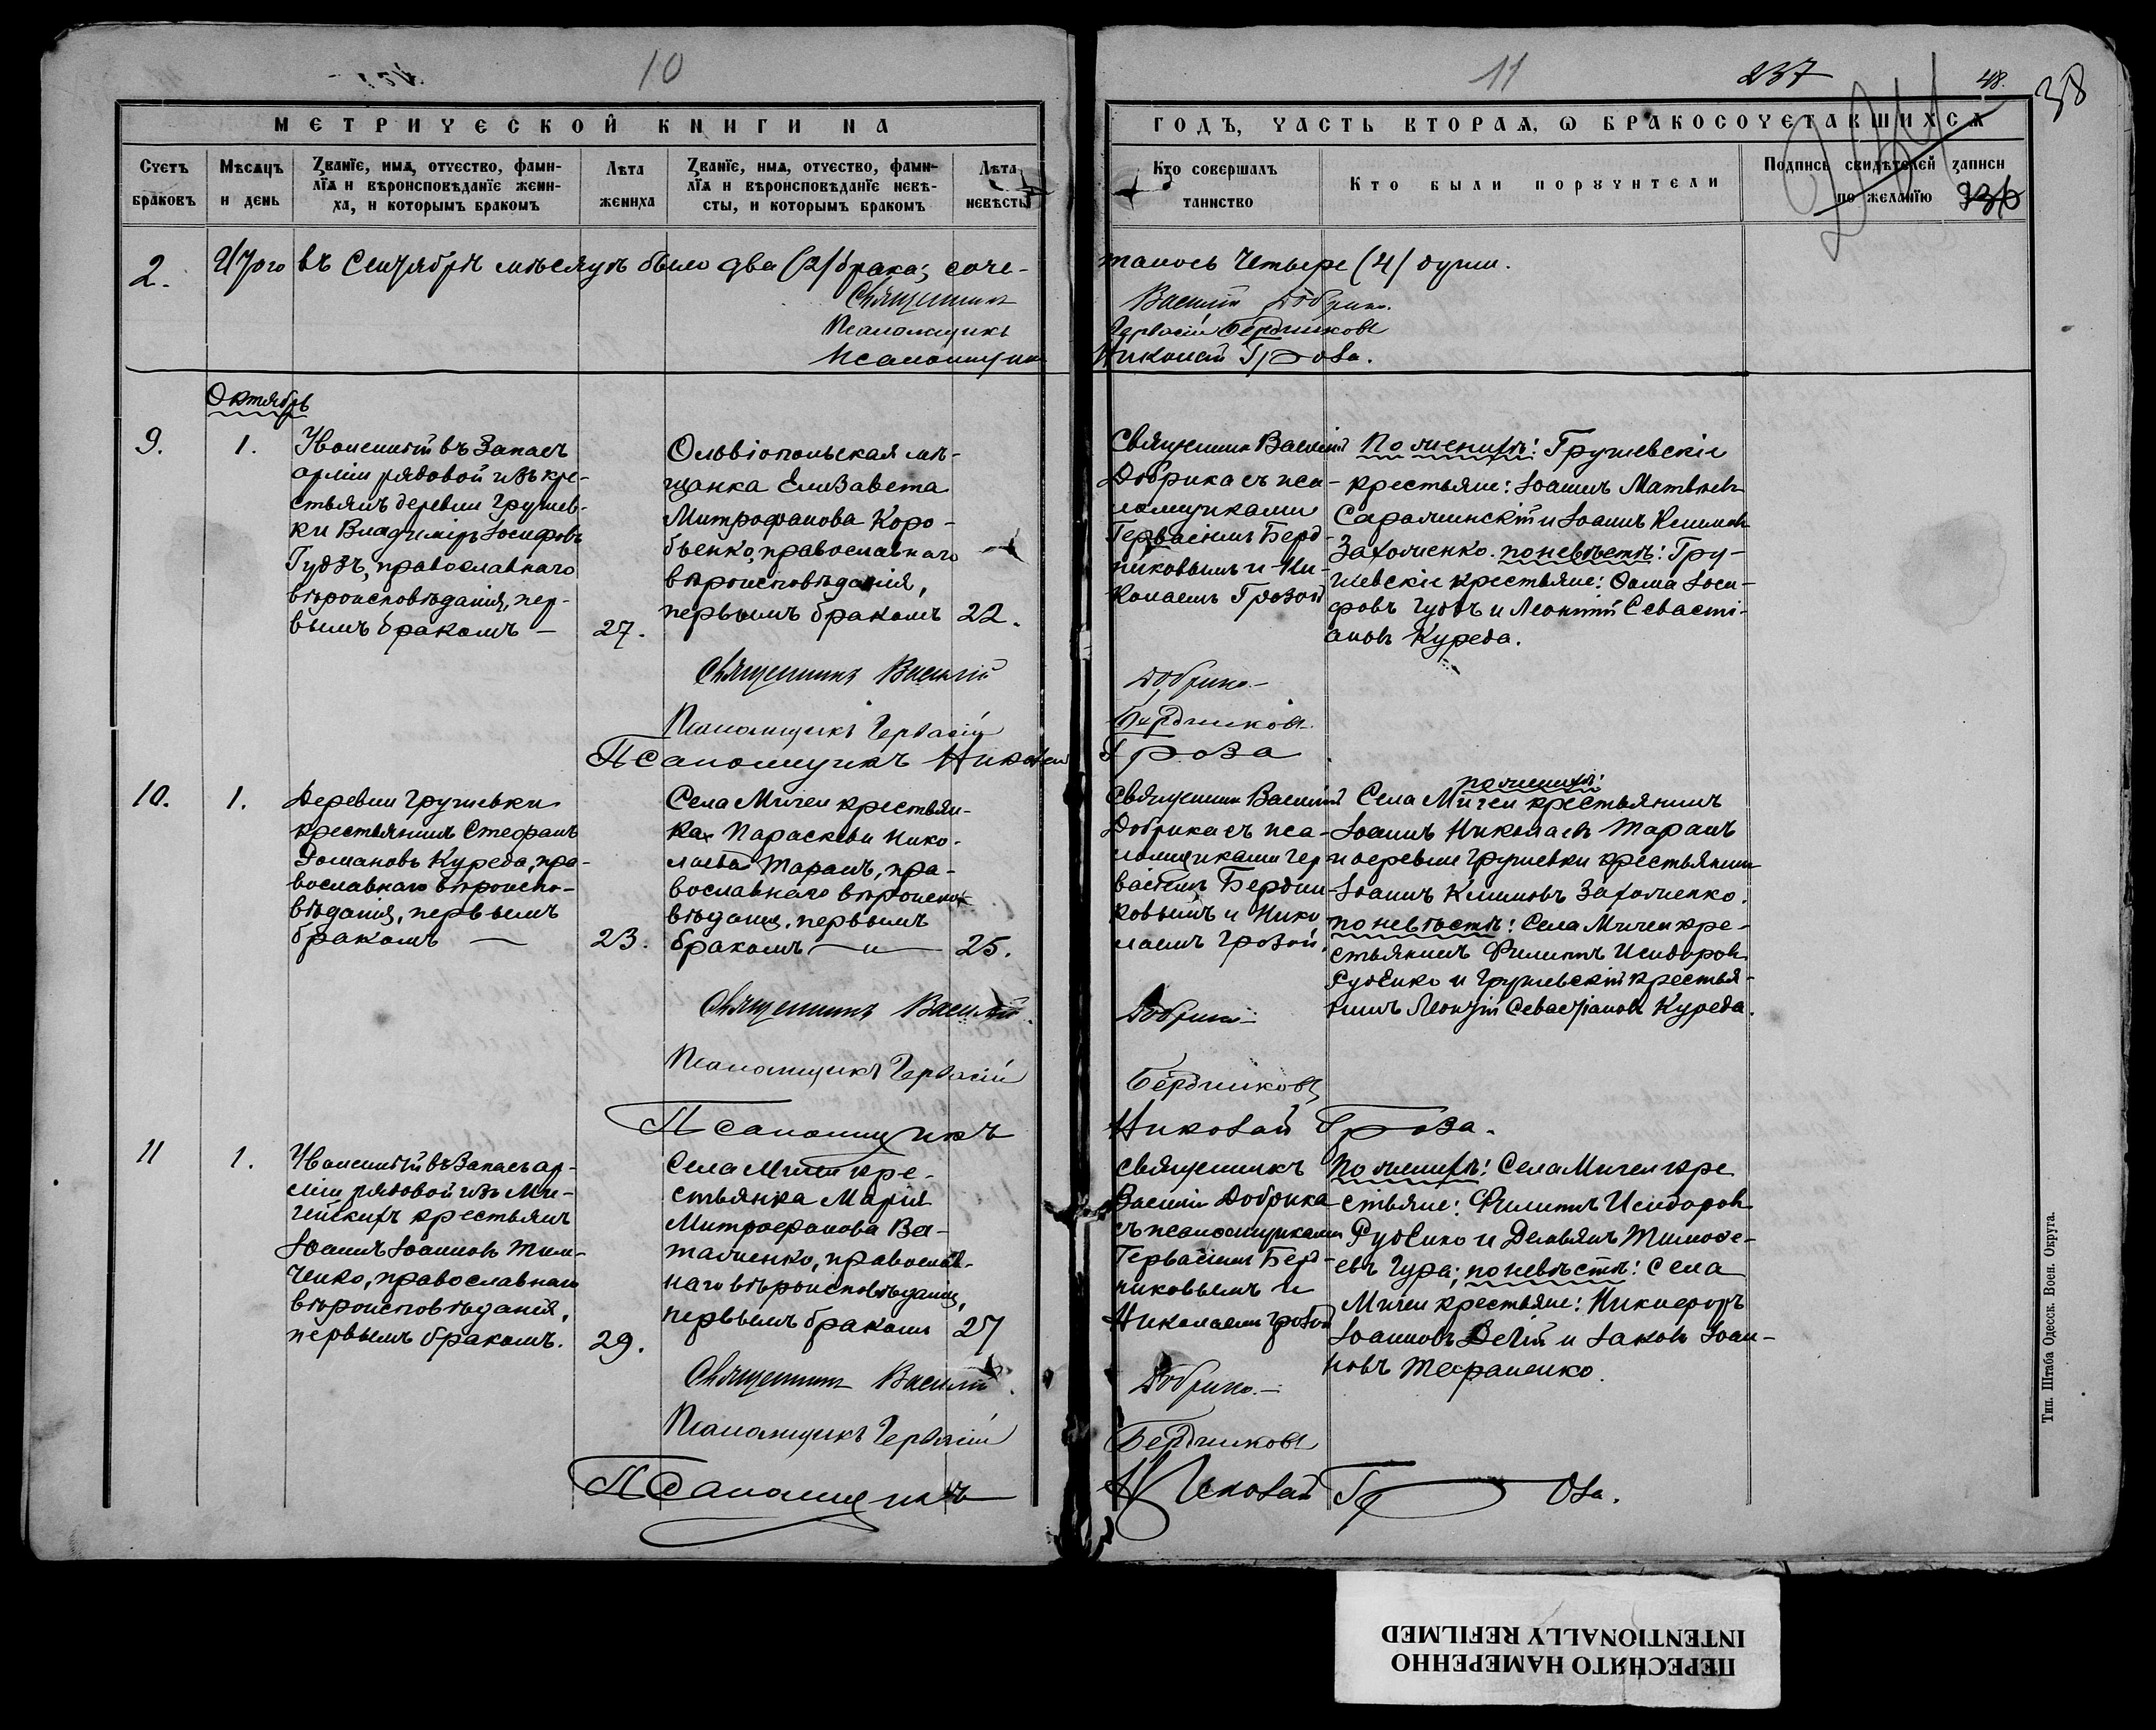 10
11
237
48.
38
МЕТРИЧЕСКОЙ КНИГИ НА
ГОДЪ, ЧАСТЬ ВТОРАѦ, Ѡ БРАКОСОЧЕТАВШИХСѦ
Счетъ браковъ
Мѣсѧцъ и день
Званїе, имѧ, отчество, фами-
лїѧ и вѣроисповѣданїе жени-
ха, и которымъ бракомъ
Лѣта жениха
Званїе, имѧ, отчество, фами-
лїѧ и вѣроисповѣданїе невѣ-
сты, и которымъ бракомъ
Лѣта невѣсты
Кто совершалъ
таинство
Кто были поручители
Подпись свидѣтелей записи
по желанїю
236
2.
Итого въ Сентябрѣ мѣсяцѣ было два (2) брака; соче-
талось четыре (4) души.
Священникъ Василій Добрика.
Псаломщикъ Гервасій Бердниковъ
Псаломщикъ Николай Гроза.
Октябрь
9.
1.
Уволенный въ запасъ
арміи рядовой изъ кре-
стьянъ деревни Грушев-
ки Владиміръ Іосифовъ
Гудзъ, православнаго
вѣроисповѣданія, пер-
вымъ бракомъ —
27.
Ольвіопольская мѣ-
щанка Елизавета
Митрофанова Коро-
бьенко, православнаго
вѣроисповѣданія,
первымъ бракомъ
22.
Священник Василій
Добрика съ пса-
ломщиками
Гервасіемъ Берд-
никовымъ и Ни-
колаемъ Грозой
По женихѣ: Грушевскіе
крестьяне: Іоаннъ Матвѣевъ
и Іоаннъ Климовъ
Захолменко. по невѣстѣ: Гру-
шевскіе крестьяне: Ѳома Іоси-
фовъ Гудзъ и Леонтій Севасті-
ановъ Куреда.
Священникъ Василій Добрика
Псаломщикъ Гервасій Бердниковъ
Псаломщикъ Николай Гроза
10.
1.
Деревни Грушевки
крестьянинъ Стефанъ
Романовъ Куреда, пра-
вославнаго вѣроиспо-
вѣданія, первымъ
бракомъ —
23.
Села Мигеи крестьян-
ка Параскева Нико-
лаева Таранъ, пра-
вославнаго вѣроиспо-
вѣданія, первымъ
бракомъ —
25.
Священник Василій
Добрика съ пса-
ломщиками Гер-
васіемъ Бердни-
ковымъ и Нико-
лаемъ Грозой.
по женихѣ:
Села Мигеи крестьянинъ
Іоаннъ Николаевъ Таранъ
и деревни Грушевки крестьянинъ
Іоаннъ Климовъ Захолменко.
по невѣстѣ: Села Мигеи кре-
стьянинъ Филиппъ Исидоровъ
Руденко и Грушевскій крестья-
нинъ Леонтій Севастіановъ Куреда.
Священникъ Василій Добрика
Псаломщикъ Гервасій Бердниковъ
Псаломщикъ Николай Гроза.
11
1.
Уволенный въ запасъ ар-
міи рядовой изъ Ми-
гейскихъ крестьянъ
Іоаннъ Іоанновъ Тим-
ченко, православнаго
вѣроисповѣданія,
первымъ бракомъ.
29.
Села Мигеи кре-
стьянка Марія
Митрофанова
православ-
наго вѣроисповѣданія,
первымъ бракомъ
27
Священникъ
Василій Добрика
съ псаломщиками
Гервасіемъ Берд-
никовымъ и
Николаемъ Грозой
По женихѣ: Села Мигеи кре
стьяне: Филиппъ Исидоровъ
Руденко и Демьянъ Тимоѳе-
евъ Гура; по невѣстѣ: Села
Мигеи крестьяне: Никифоръ
Іоанновъ и Іаковъ Іоан-
новъ Тараненко.
Священникъ Василій Добрика.
Псаломщикъ Гервасій Бердниковъ
Псаломщикъ Николай Гроза.
Тип. Штаба Одесск. Воен. Округа.
ПЕРЕСНЯТО НАМЕРЕННО
INTENTIONALLY REFILMED